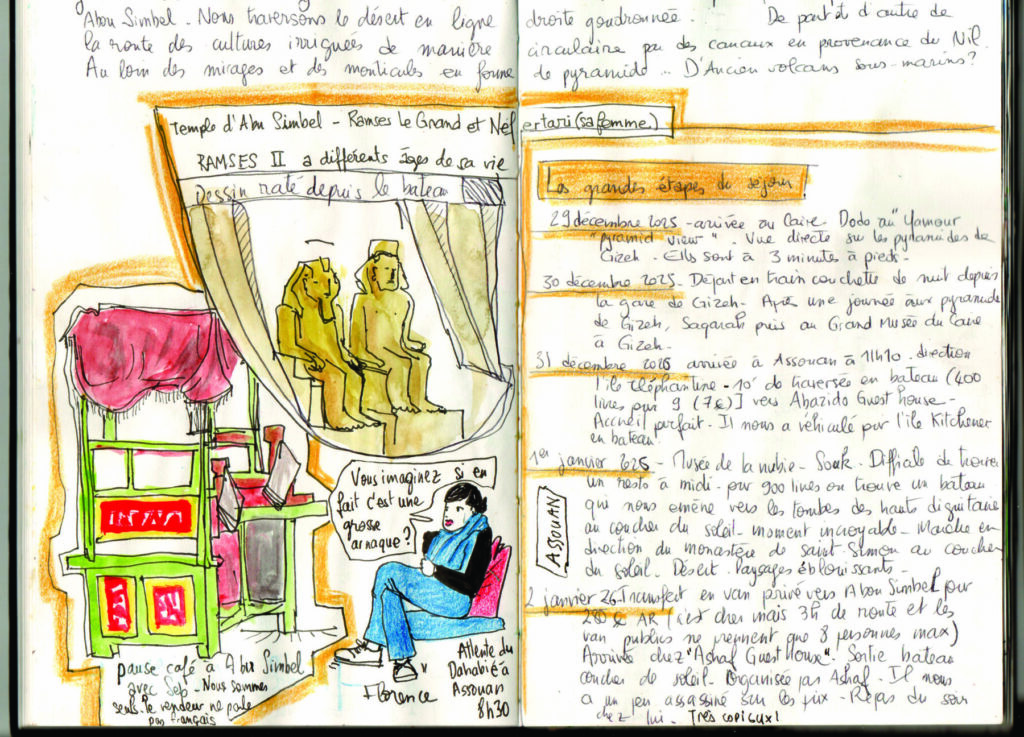 Abou Simbel - Nous traversons le désert en ligne droite goudronnée. De part et d'autre de
la route des cultures irriguées de manière circulaire par des canaux en provenance du Nil.
Au loin des mirages et des monticules en forme de pyramide... D'Ancien volcans sous-marins?
Temple d'Abu Simbel - Ramses Le Grand et Nefertari (sa femme.)
RAMSES II a différents âges de sa vie
Dessin raté depuis le bateau
Vous imaginez si en
fait c'est une
grosse
arnaque?
pause café à Abu Simbel
avec Sep - Nous sommes
seuls. le vendeur ne parle
pas français
Florence
Attente du
Dahabié à
Assouan
8h30
Les grandes étapes du séjour
29 décembre 2025 - arrivée au Caire - Dodo au "Yamour
"pyramid view". Vue directe sur les pyramides de
Gizeh. Ells sont à 3 minutes à pieds -
30 décembre 2025 - Départ en train couchette de nuit depuis
la gare de Gizeh - Après une journée aux pyramide
de Gizeh, Saqarah puis au Grand Musée du Caire
à Gizeh -
31 décembre 2025 arrivée à Assouan à 11h10 - direction
l'île éléphantine - 10' de traversée en bateau (400
livres pour 9 (7€)] vers Abazido Guest house -
Accueil parfait - Il nous a véhiculé par l'île Kitchener
en bateau!
1er janvier 2025 - Musée de la nubie - Souk - Difficile de trouver
un resto à midi - pour 900 livres on trouve un bateau
qui nous emène vers les tombes des hauts dignitaire
au coucher du soleil - moment incroyable - Marche en
direction du monastère de saint-Simon au coucher
du soleil. Désert. Paysages éblouissants -
ASSOUAN
2 janvier 26 - Transfert en van privé vers Abou Simbel pour
€ AR (c'est cher mais 3h de route et les
van publics ne prennent que 8 personnes max)
Arrivée chez "Ashaf Guest House". Sortie bateau
coucher de soleil. Organisée par Ashaf. Il nous
a un peu assassiné sur les prix - Repas du soir
chez lui. Très copieux!